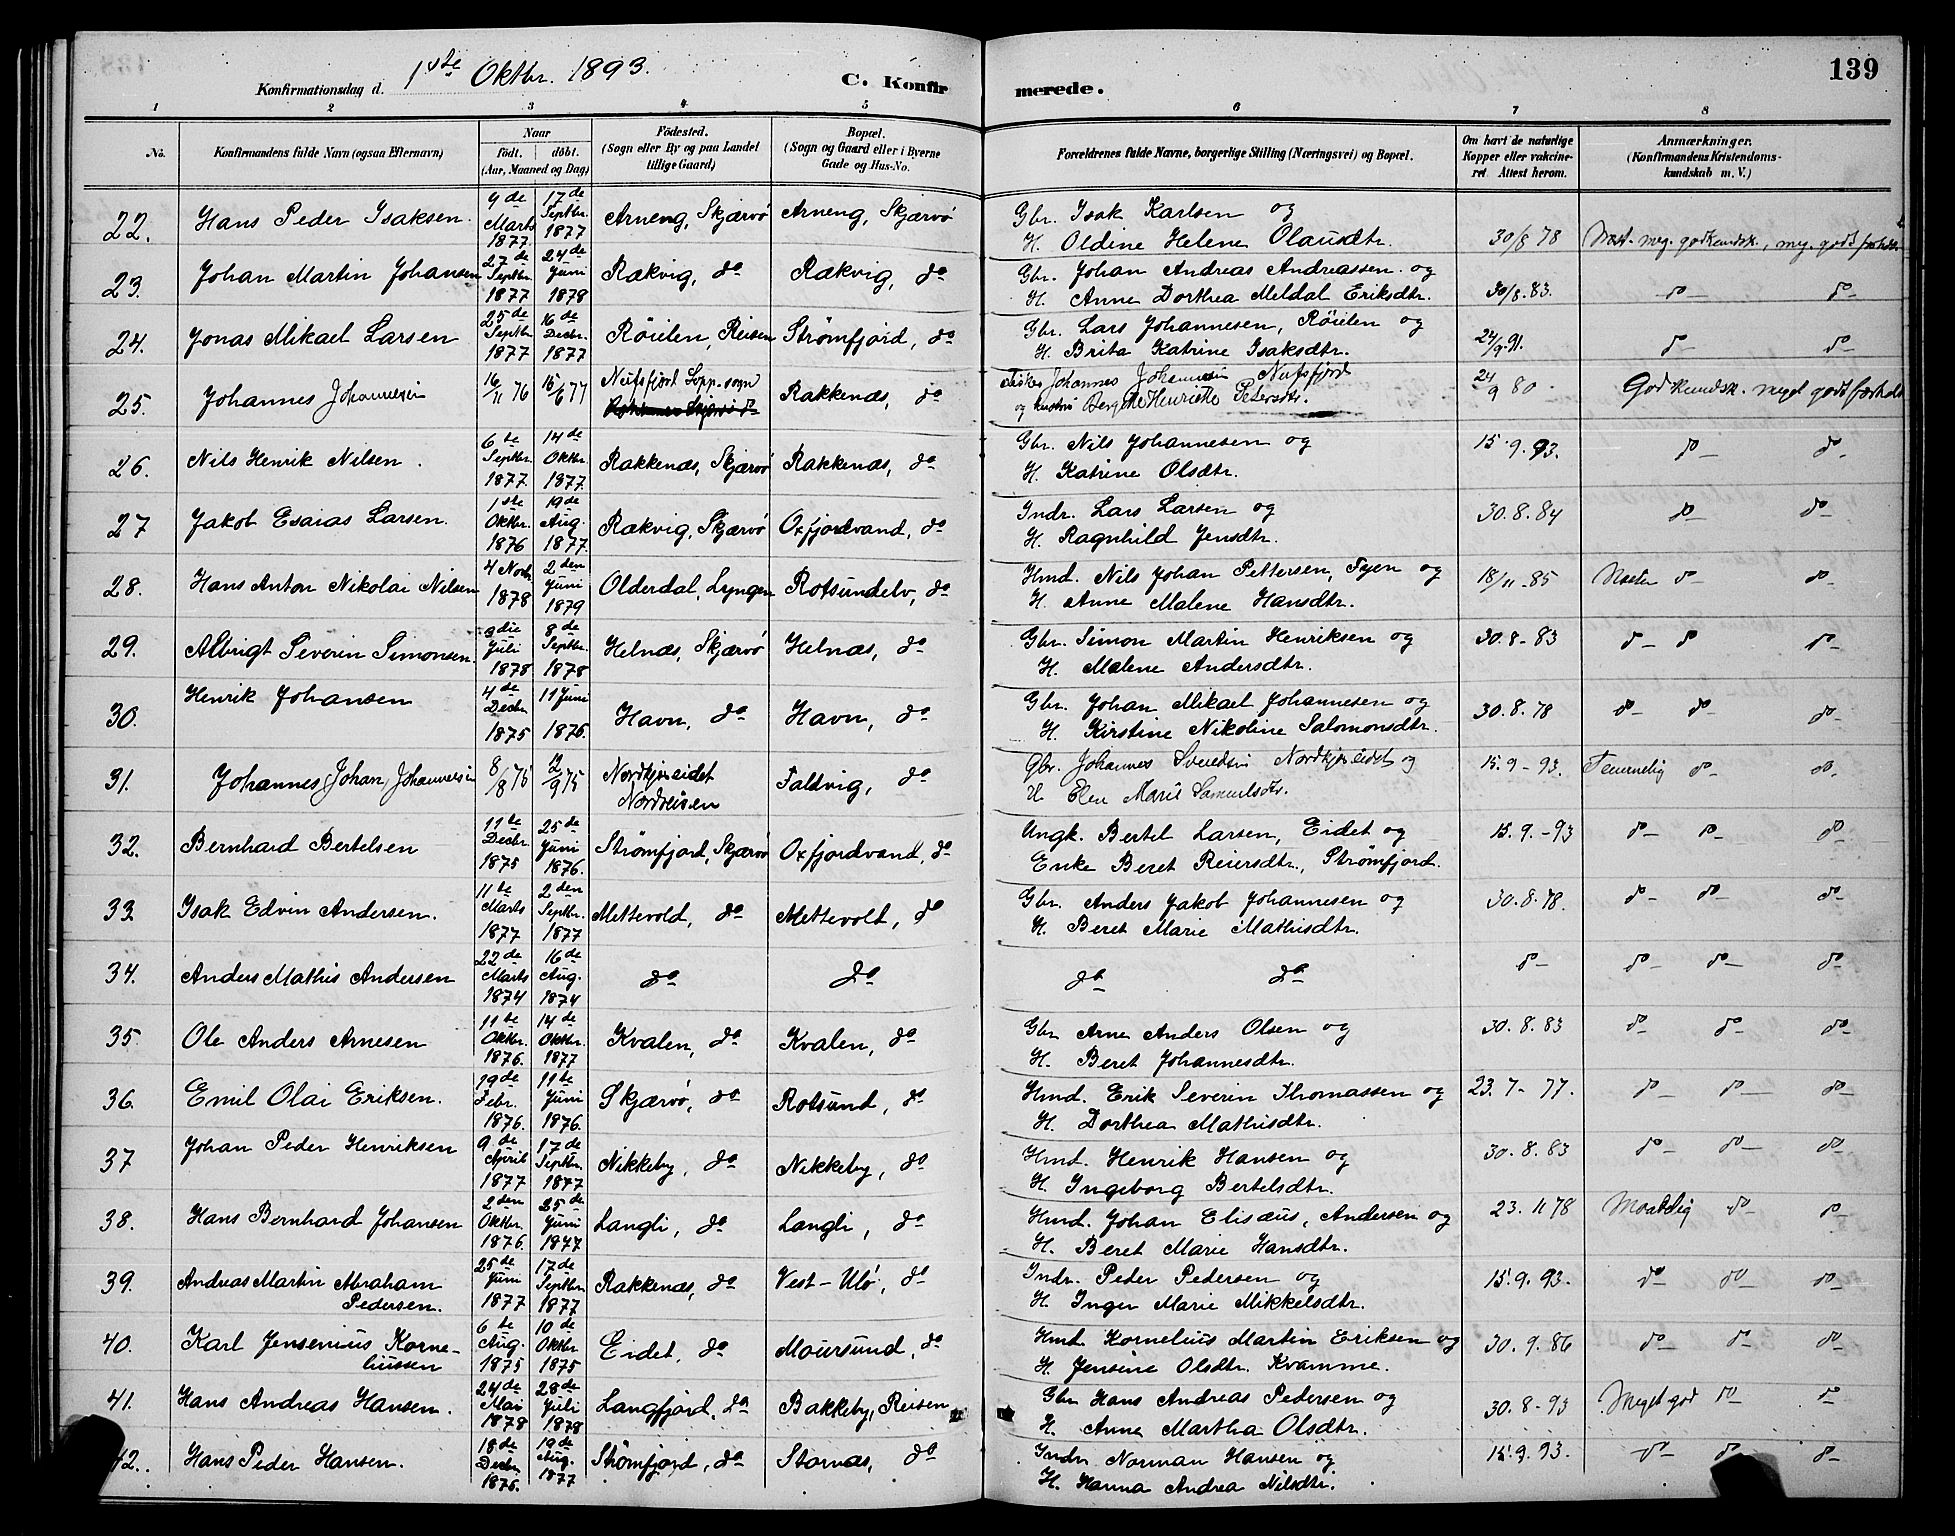 139
Konfirmationsdag d. 1ste Oktbr. 1893. C. Konfir merede.
1 2 3 4 5 6 7 8
No. Konfirmandens fulde Navn (ogsaa Efternavn) Naar født. døbt. (Aar, Maaned og Dag) Fødested. (Sogn eller By og paa Landet tillige Gaard) Bopæl. (Sogn og Gaard eller i Byerne Gade og Hus-No. Forældrenes fulde Navne, borgerlige Stilling (Næringsvei) og Bopæl. Om havt de naturlige Kopper eller vakcineret. Attest herom. Anmærkninger. (Konfirmandens Kristendomskundskab m. V.)
22. Hans Peder Isaksen. 9de Marts 1877. 17de Septbr. 1877 Arneng, Skjærvö Arneng, Skjærvö Gbr. Isak Karlsen og
H. Oldine Helene Olausdtr. 30/8 78 Næst. meg. godkundsk., meg. godt forhold
23. Johan Martin Johansen 27de Septbr. 1877 24de Juni 1878 Rækvig, do Rækvig, do Gbr. Johan Andreas Andreassen og
H. Anne Dorthea Meldal Eriksdtr. 30/8.83. do do
24. Jonas Mikael Larsen 25de Septbr. 1877 16de Decbr. 1877 Röielen, Reisen Strömfjord, do Gbr. Lars Johannesen, Röielen og
H. Brita Katrine Isaksdtr. 24/9.91. do do
25. Johannes Johannesen 16/11 76 15/6 77 Nufsfjord Lopp. sogn Rakkenæs, do Fisker Johannes Johannesen Nufsfjord
og hustru Bergithe Henriette Petersdtr. 24/9 80 God kundsk. meget godt forhold
26. Nils Henrik Nilsen. 6te Septbr. 1877. 14de Oktbr. 1877. Rakkenæs, Skjærvö Rakkenæs, do Gbr. Nils Johannesen og
H. Katrine Olsdtr. 15.9.93. do do
27 Jakob Esaias Larsen. 1ste Oktbr. 1876 19de Aug. 1877. Rækvig, Skjærvö Oxfjordvand, do Indr. Lars Larsen og
H. Ragnhild Jensdtr. 30.8.84 do do
28. Hans Anton Nikolai Nilsen 4 Novbr. 1878 2den Juni 1879 Olderdal, Lyngen Rotsundelv, do Hmd. Nils Johan Pettersen, Fyen og
H. Anne Malene Hansdtr. 18/11-85 Næsten do do
29. Albrigt Severin Simonsen. 9die Juli 1878 8de Septbr. 1878 Helnæs, Skjærvö Helnæs, do Gbr. Simon Martin Henriksen og
H. Malene Andersdtr. 30.8-83 do do do
30. Henrik Johansen 4de Decbr. 1875 11 Juni 1876. Havn, do Havn, do Gbr. Johan Mikael Johannesen og
H. Kirstine Nikoline Salomonsdtr. 30.8.78 do do do
31. Johannes Johan Johannesen 8/8 75 12/9 75 Nordkjoseidet Nordreisen Taldvig, do Gbr. Johannes Svendsen Nordkjoseidet og
H. Elen Marie Samuelsdtr. 15.9-93. Temmelig do do
32. Bernhard Bertelsen 11te Decbr. 1875 25de Juni 1876. Strömfjord, Skjærvö Oxfjordvand, do Ungk. Bertel Larsen, Eidet og
Enke Beret Reiersdtr., Strömfjord. 15.9.-93 do do do
33. Isak Edvin Andersen. 11te Marts 1877 2den Septbr. 1877 Mettevold, do Mettevolt, do Gbr. Anders Jakob Johannesen og
H. Beret Marie Mathisdtr. 30.8.78. do do do
34. Anders Mathis Andersen 22de Marts 1874 16de Aug. 1874 do do do do do do do do
35 Ole Anders Arnesen 11te Oktbr. 1876. 14de Oktbr. 1877 Kvalen, do Kvalen, do Gbr Arne Anders Olsen og
H. Beret Johannesdtr. 30.8.83 do do do
36. Emil Olai Eriksen. 19de Febr. 1876. 11te Juni 1876. Skjærvö, do Rotsund, do Hmd. Erik Severin Thomassen og
H. Dorthea Mathisdtr. 23.7-77. do do do
37 Johan Peder Henriksen 9de April 1877 17de Septbr. 1877 Nikkeby, do Nikkeby, do Hmd. Henrik Hansen og
H. Ingeborg Bertelsdtr. 30.8.83 do do do
38. Hans Bernhard Johansen 2den Oktbr. 1876. 25de Juni 1877 Langli, do Langli, do Hmd. Johan Elisæus, Andersen og
H. Beret Marie Hansdtr. 23.11 78 Maadelig do do
39. Andreas Martin Abraham Pedersen. 25de Juni 1877 17de Septbr. 1877 Rakkenæs, do Vest-Ulö, do Indr. Peder Pedersen og
H. Inger Marie Mikkelsdtr. 15.9.93. do do do
40. Karl Jensenius Korneliussen 6te Aug. 1875 10de Oktbr 1875 Eidet, do Maursund, do Hmd. Kornelius Martin Eriksen og
H. Jensine Olsdtr. Kvamme. 30.9.86 do do do
41. Hans Andreas Hansen. 24de Mai 1878 28de Juli 1878 Langfjord, do Bakkeby, Reisen Gbr Hans Andreas Pedersen og
H. Anne Martha Olsdtr. 30.8-93 Meget god do do
42. Hans Peder Hansen. 18de Decbr. 1876. 19de Aug. 1877 Strömfjord, do Stornæs, do Indr. Norman Hansen og
H. Hanna Andrea Nilsdtr. 15.9.93. do do do